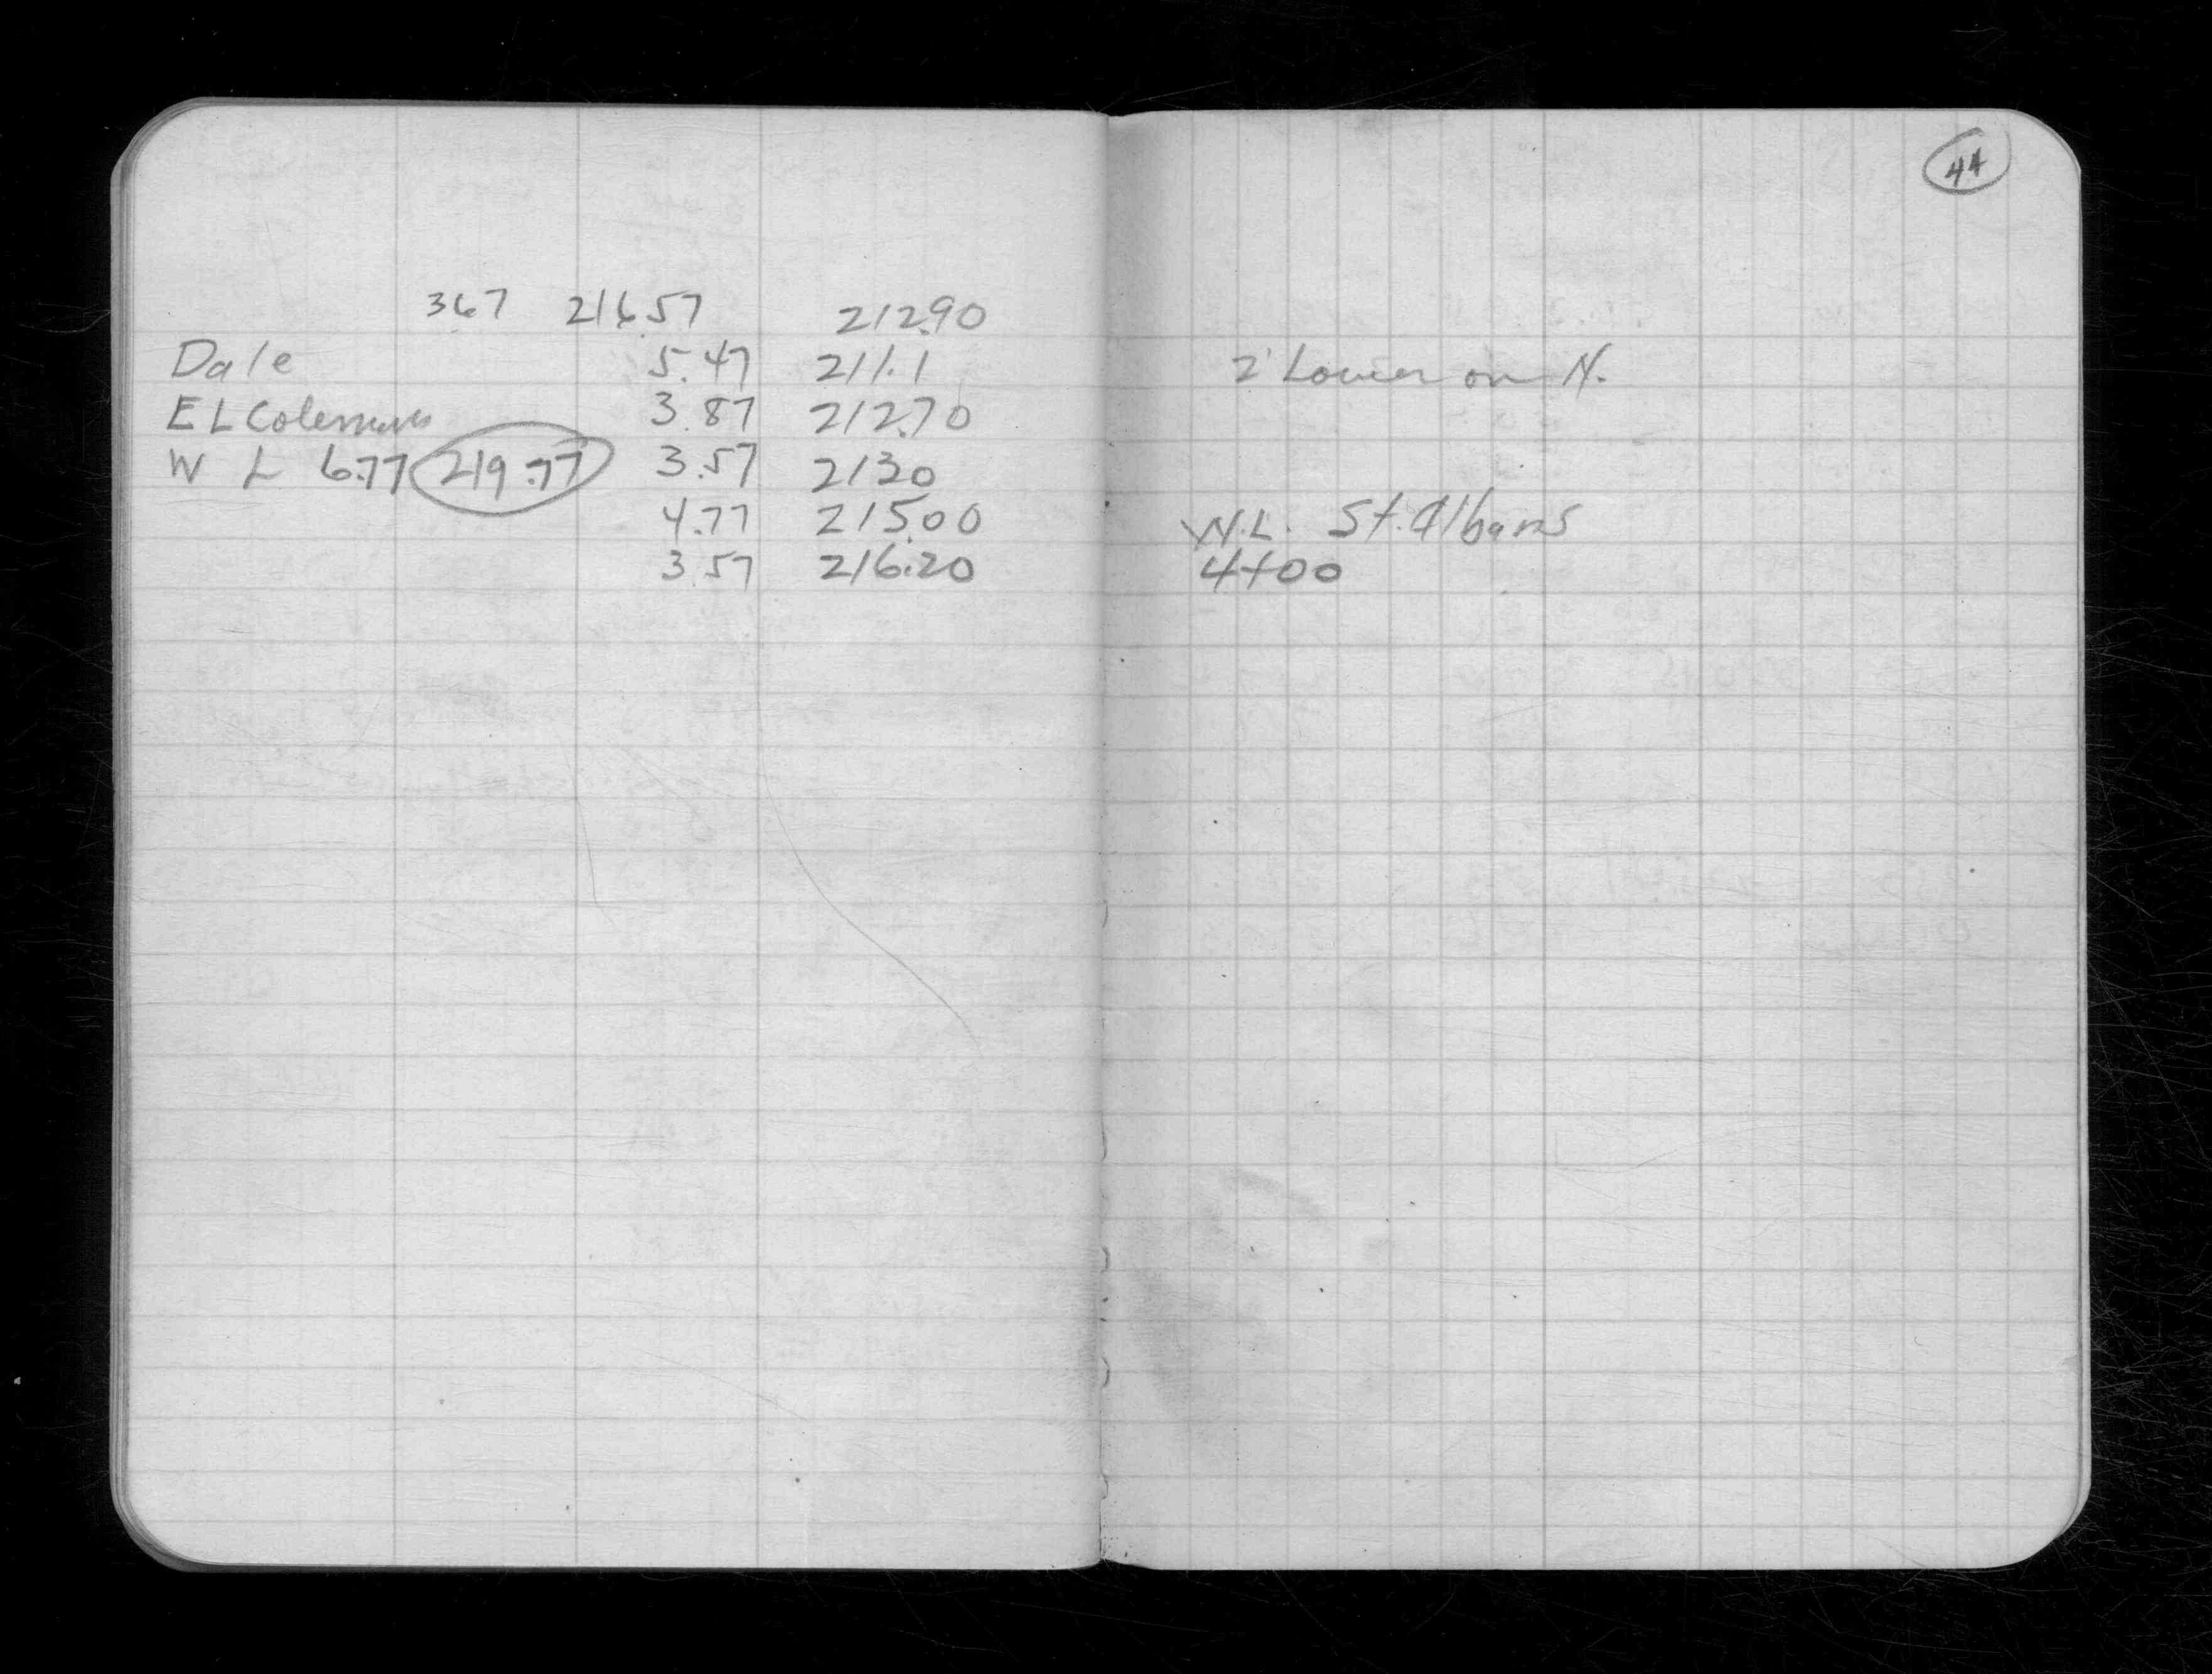 44
3.67 216.57 212.90
Dale 5.47 211.1
E L Colemans 3.87 212.70
W L 6.77 219.77 3.57 213.0
4.77 215.00
3.57 216.20
2' Lower on N.
W.L. St. Albans
4+00